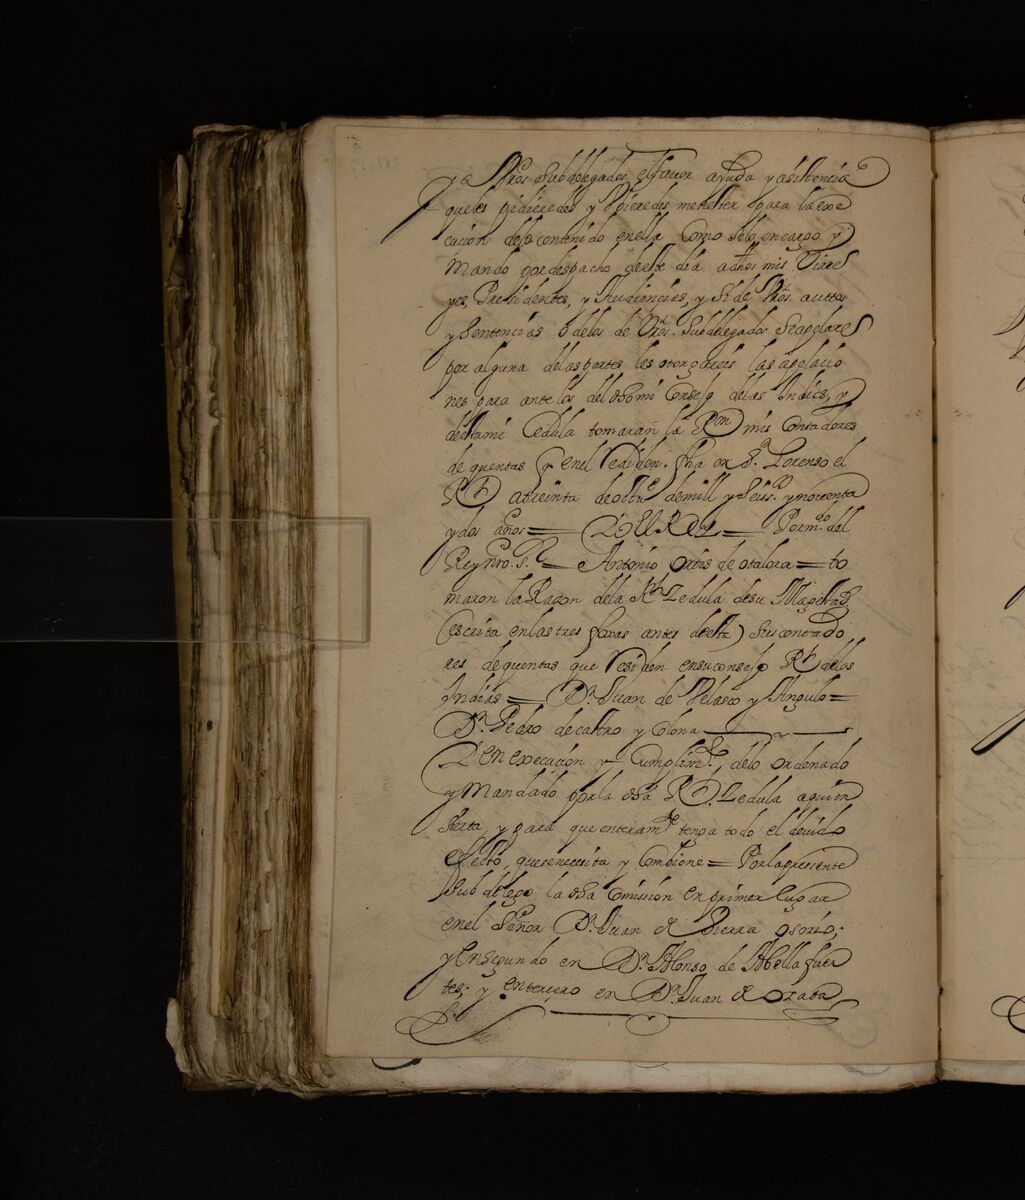 y a Vr̃os. Subdelegados el fauor ayuda y asistencia
que les pidieredes y Vbieredes menester para la exe
cucion delo contenido enella Como selo encargo y
Mando por despacho deeste dia adh̃os mis Virre
yes, Presidentes, y Audiencias, y si de Vr̃os. auttos
y Sentencias o delos de Vr̃os. Subdelegados se apelare
por alguna delas partes les otorgareis las apelacio
nes para ante los del dh̃o mi Consejo delas Indias, y
deesta mi Cedula tomaran la Rn mis Contadores
de quentas q enel Residen. fh̃a en Sn. Lorenso el
Rl atreinta de octue. de mill y seiss. y nouenta
y dos años = YO EL REY = Por mdo. del
Rey nr̃o. sr. = Antonio ortis de otalora = to
maron la Razon dela Rl Zedula desu Magestad
(escrita en las tres foxas antes deesta) Sus contado
res de quentas que residen en su consejo Rl. delas
Indias = Dn. Juan de Velasco y Angulo =
Dn. Pedro de castro y Colona
Y en execucion y Cumplimto., delo ordenado
y Mandado por la dh̃a Rl. Zedula aqui in
serta, y para que enteramte. tenga todo el deuido
efecto, que se necesita y Combiene = Por la presente
Subdelego la dh̃a Comission en primer lugar
en el Señor Dn. Juan de Sierra osorio;
y en segundo en Dn. Alonso de Abella fuer
tes; y en tercero en Dn. Juan de Ozaeta